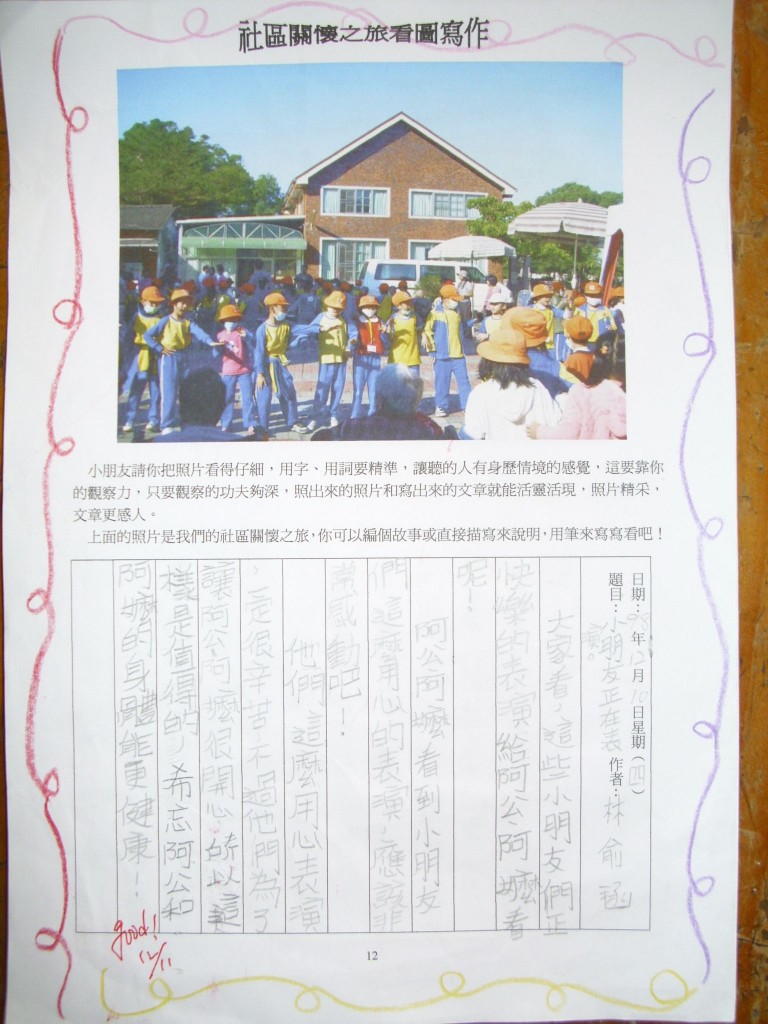 社區關懷之旅看圖寫作
小朋友請你把照片看得仔細，用字、用詞要精準，讓聽的人有身歷情境的感覺，這要靠你
的觀察力，只要觀察的功夫夠深，照出來的照片和寫出來的文章就能活靈活現，照片精采，
文章更感人。
上面的照片是我們的社區關懷之旅，你可以編個故事或直接描寫來說明，用筆來寫寫看吧！
日期：98年12月10日星期（四）
題目：小朋友正在表演。 作者：林俞涵
大家看，這些小朋友們正
快樂的表演給阿公阿嬤看
呢！
阿公阿嬤看到小朋友
們這麼用心的表演，應該非
常感動吧！
他們這麼用心表演
，是很辛苦不過他們為了
讓阿公阿嬤很開心，所以這
樣是值得的，希忘阿公和
阿嬤的身體能更健康！
good!
12/11
12